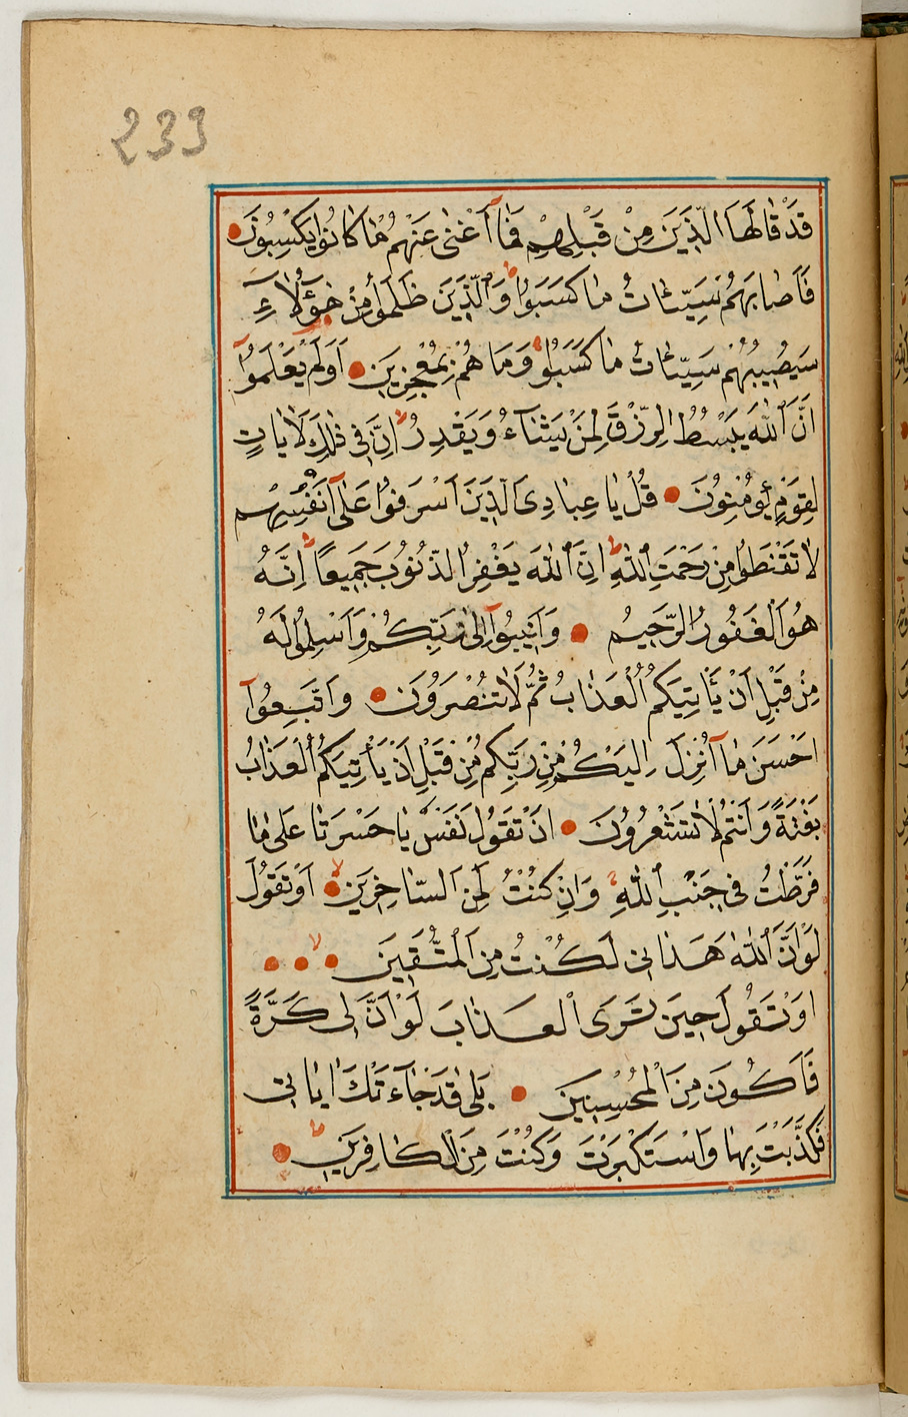 233
قَدْ قَالَهَا الَّذِينَ مِنْ قَبْلِهِمْ فَمَا أَغْنٰى عَنْهُمْ مَا كَانُوا يَكْسِبُونَ
فَاَصَابَهُمْ سَيِّئَاتُ مَا كَسَبُوا وَالَّذِينَ ظَلَمُوا مِنْ هٰؤُلَاءِ
سَيُصِيبُهُمْ سَيِّئَاتُ مَا كَسَبُوا وَمَا هُمْ بِمُعْجِزِينَ اَوَلَمْ يَعْلَمُوا
اَنَّ اللّٰهَ يَبْسُطُ الرِّزْقَ لِمَنْ يَشَاءُ وَيَقْدِرُ اِنَّ فِى ذٰلِكَ لَاٰيَاتٍ
لِقَوْمٍ يُؤْمِنُونَ قُلْ يَا عِبَادِىَ الَّذِينَ اَسْرَفُوا عَلٰى اَنْفُسِهِمْ
لَا تَقْنَطُوا مِنْ رَحْمَتِ اللّٰهِ اِنَّ اللّٰهَ يَغْفِرُ الذُّنُوبَ جَمِيعًا اِنَّهُ
هُوَ الْغَفُورُ الرَّحِيمُ وَاَنِيبُوا اِلٰى رَبِّكُمْ وَاَسْلِمُوا لَهُ
مِنْ قَبْلِ اَنْ يَأْتِيَكُمُ الْعَذَابُ ثُمَّ لَا تُنْصَرُونَ وَاتَّبِعُوا
اَحْسَنَ مَا اُنْزِلَ اِلَيْكُمْ مِنْ رَبِّكُمْ مِنْ قَبْلِ اَنْ يَأْتِيَكُمُ الْعَذَابُ
بَغْتَةً وَاَنْتُمْ لَا تَشْعُرُونَ اَنْ تَقُولَ نَفْسٌ يَا حَسْرَتَا عَلٰى مَا
فَرَّطْتُ فِى جَنْبِ اللّٰهِ وَاِنْ كُنْتُ لَمِنَ السَّاخِرِينَ اَوْ تَقُولَ
لَوْ اَنَّ اللّٰهَ هَدَانِى لَكُنْتُ مِنَ الْمُتَّقِينَ
اَوْ تَقُولَ حِينَ تَرَى الْعَذَابَ لَوْ اَنَّ لِى كَرَّةً
فَاَكُونَ مِنَ الْمُحْسِنِينَ بَلٰى قَدْ جَاءَتْكَ اٰيَاتِى
فَكَذَّبْتَ بِهَا وَاسْتَكْبَرْتَ وَكُنْتَ مِنَ الْكَافِرِينَ